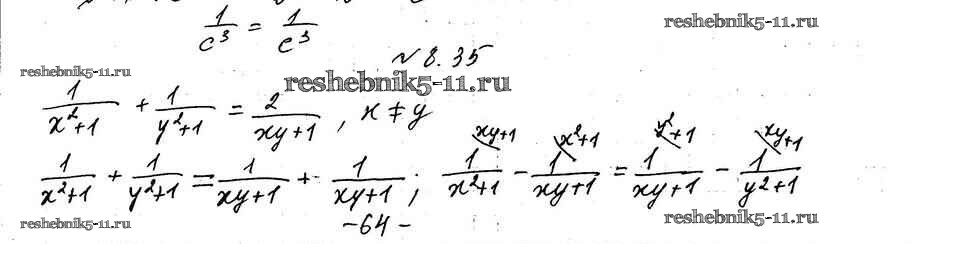 1/c³ = 1/c³
reshebnik5-11.ru
№ 8.35
reshebnik5-11.ru
reshebnik5-11.ru
1/(x²+1) + 1/(y²+1) = 2/(xy+1), x ≠ y
1/(x²+1) + 1/(y²+1) = 1/(xy+1) + 1/(xy+1); 1\xy+1/(x²+1) − 1\x²+1/(xy+1) = 1\y²+1/(xy+1) − 1\xy+1/(y²+1)
-64-
reshebnik5-11.ru
reshebnik5-11.ru